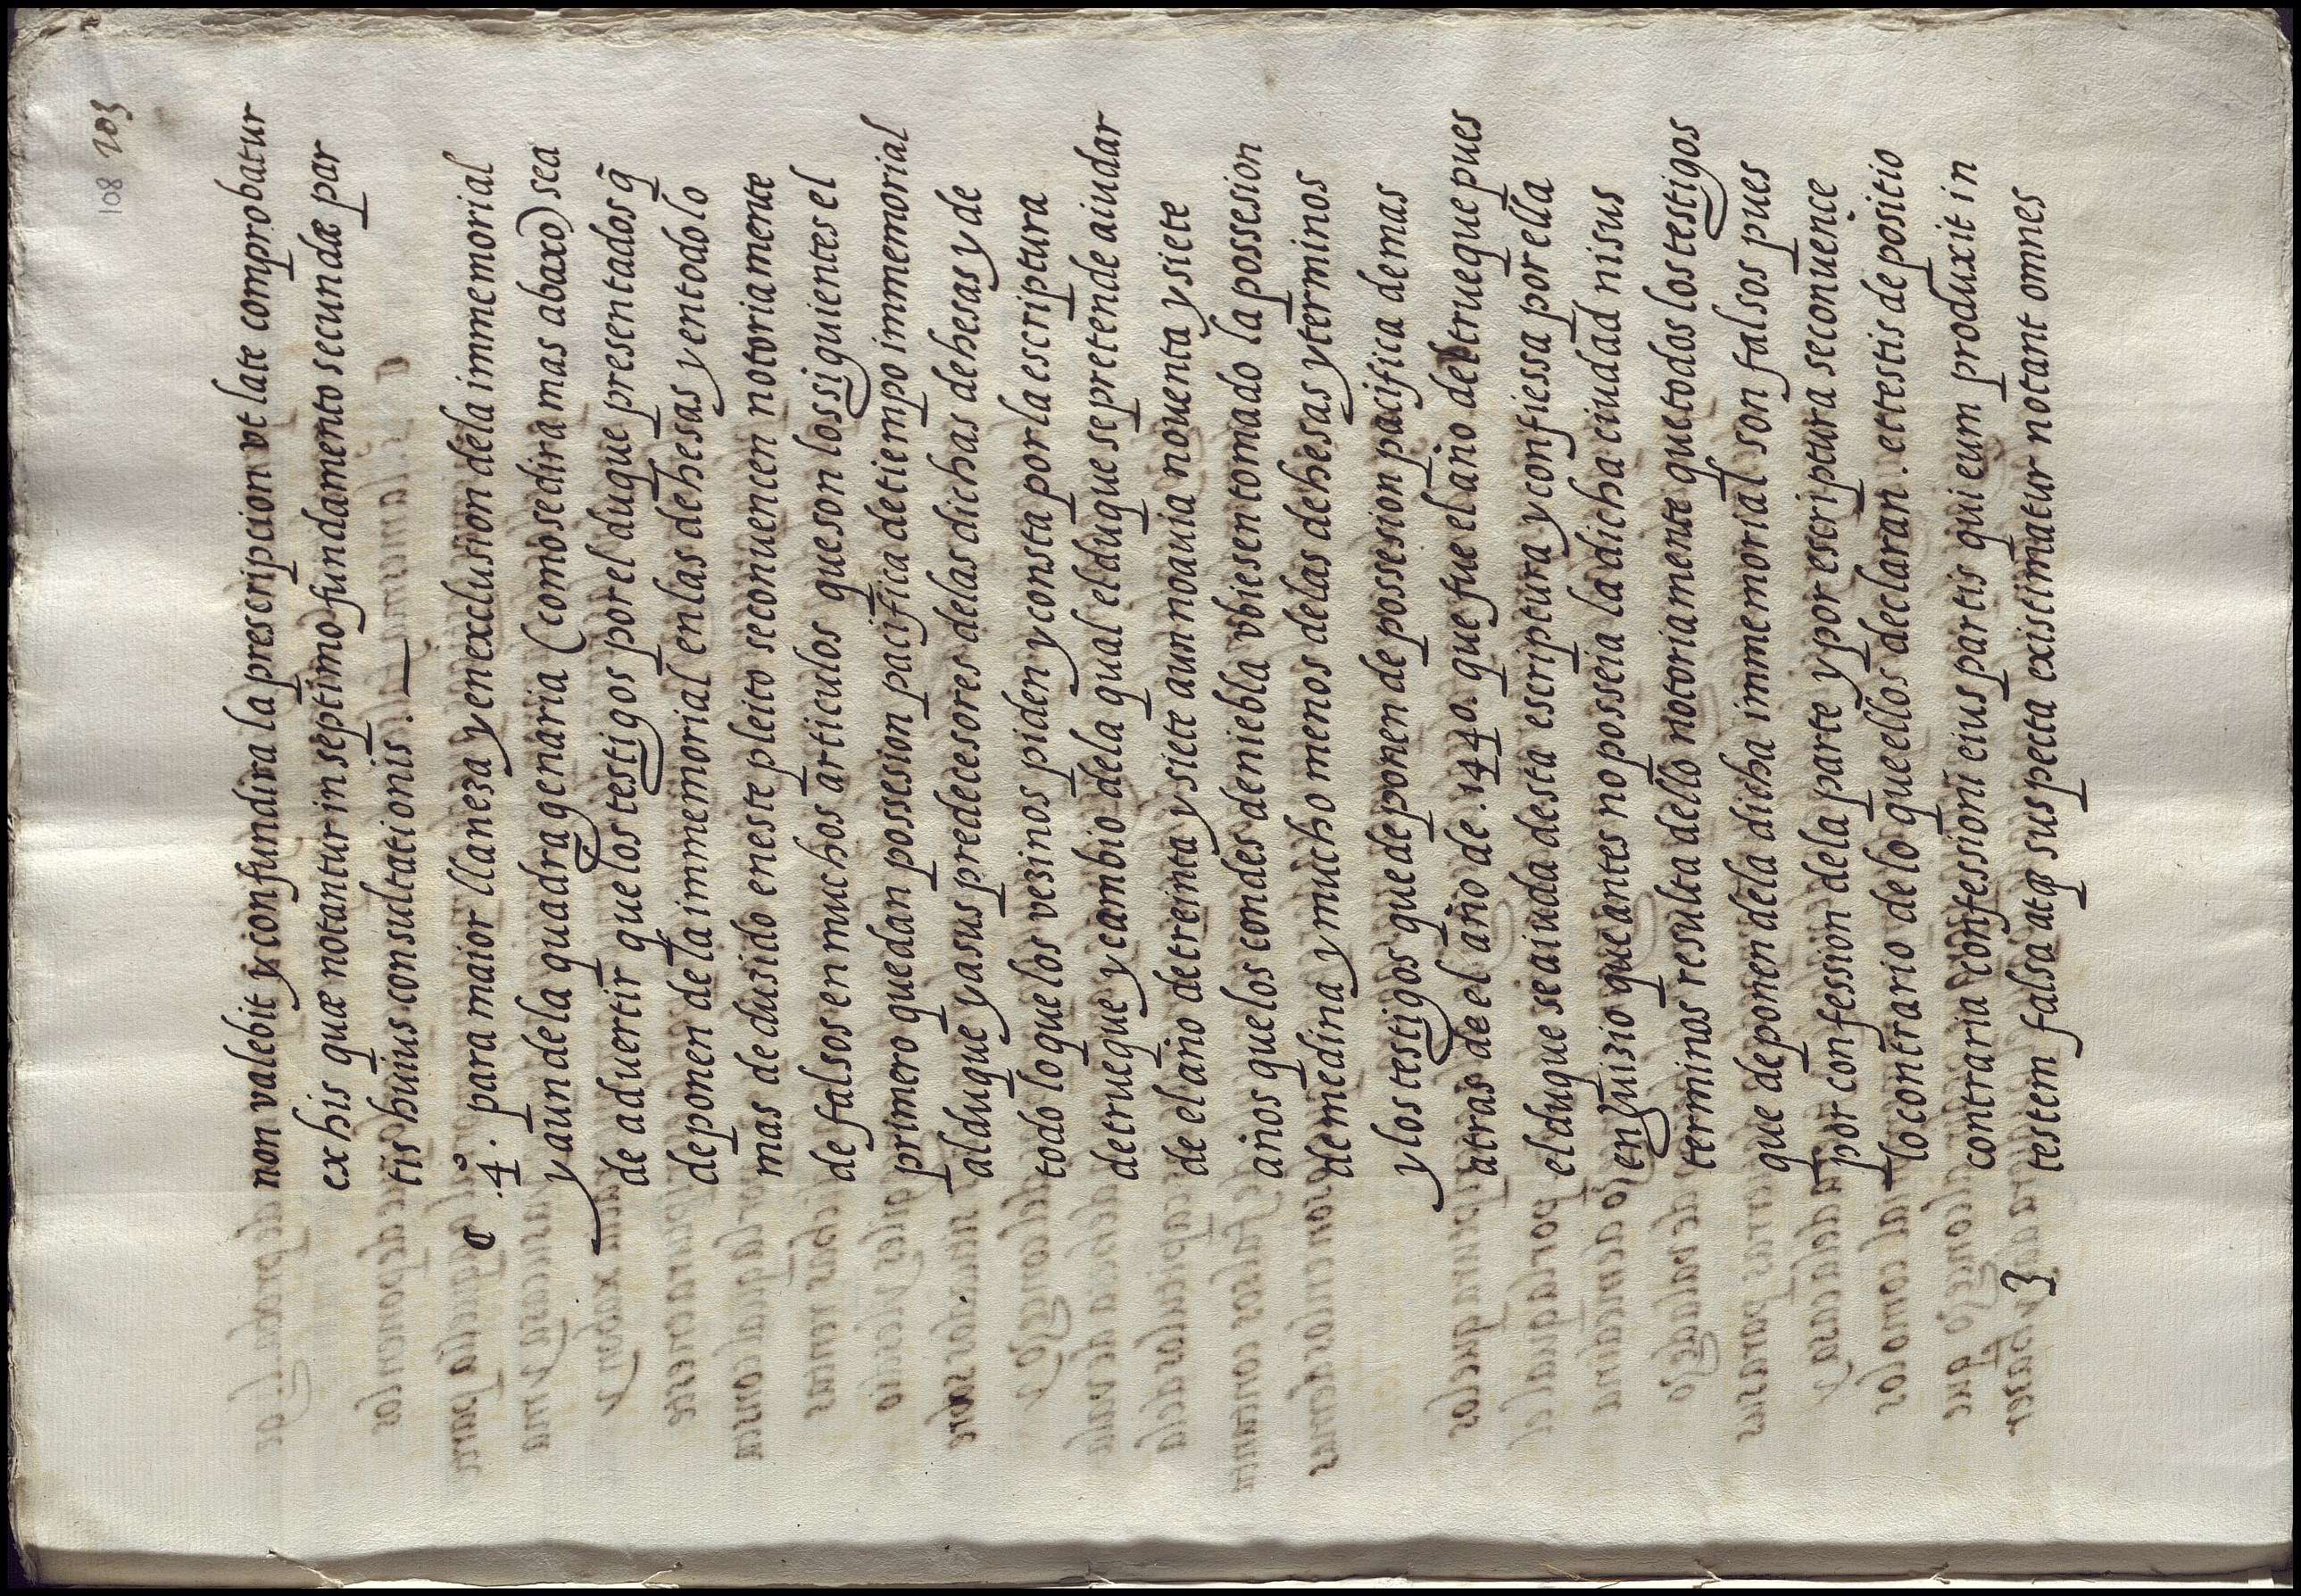 108 203
non valebit y confundira la prescripcion vt late comprobatur
ex his quæ notantur in septimo fundamento secundæ par
tis huius consultationis.
.4º. para maior llaneza y en exclusion de la immemorial
y aun de la quadragenaria (como se dira mas abaxo) sea
de aduertir que los testigos por el duque presentados q̃
deponen de la immemorial en las dehesas y en todo lo
mas deduzido en este pleito se conuencen notoriamente
de falsos en muchos articulos que son los siguientes el
primero que dan possesion pacifica de tiempo immemorial
al duque y a sus predecesores de las dichas dehesas y de
todo lo que los vezinos piden y consta por la escriptura
de trueque y cambio de la qual el duque se pretende aiudar
de el año de treinta y siete aun no auia nouenta y siete
años que los condes de niebla vbiesen tomado la possesion
de medina y mucho menos de las dehesas y terminos
y los testigos que deponen de possesion pacifica de mas
atras de el año de .1440. que fue el año del trueque pues
el duque se aiuda desta escriptura y confiessa por ella
en juizio que antes no posseia la dicha ciudad ni sus
terminos resulta dello notoriamente que todos los testigos
que deponen de la dicha immemorial son falsos pues
por confession de la parte y por escriptura se conuençe
lo contrario de lo que ellos declaran. et testis depositio
contraria confessioni eius partis qui eum produxit in
testem falsa atq3 suspecta existimatur notant omnes